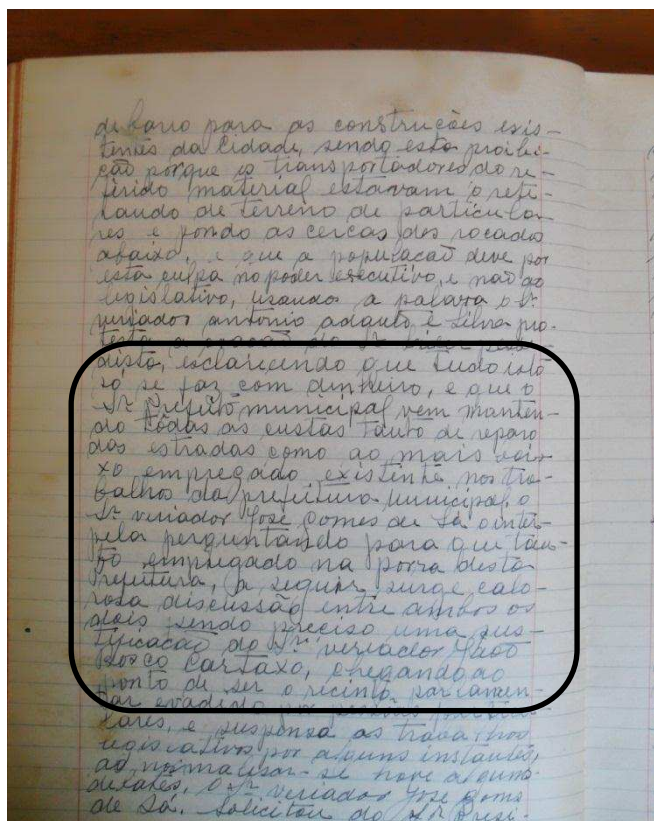 de barro para as construções exis-
tentes da Cidade, sendo esta proibi-
ção porque os transportadores do re-
ferido material estavam o reti-
rando de terreno de particula-
res e pondo as cercas dos roçados
abaixo, e que a população deve por
esta culpa no poder executivo, e não ao
legislativo, usando a palavra o Sr.
veriador antonio adauto e Silva pro-
testa a oração do Sr
disto, esclarecendo que tudo isto
só se faz com dinheiro, e que o
Sr. Prefeito municipal vem manten-
do tôdas as custas tanto de reparo
das estradas como ao mais baix-
xo empregado existente nos tra-
balhos da prefeitura municipal, o
Sr. veriador José Gomes de Sá o inter-
pela perguntando para que tan-
to empregado na porra desta
Prefeitura, a seguir surge calo-
rosa discussão entre ambos os
dois sendo preciso uma jus-
tificacão do Sr. veriador João
Bosco Cartaxo, chegando ao
ponto de ser o recinto parlamen-
tar evadido por pessoas particu-
lares, e suspensa os trabalhos
legislativos por alguns instantes,
ao normalisar-se houve alguns
debates, O Sr. veriador José Gomes
de Sá. Solicitou do Sr. Presi-